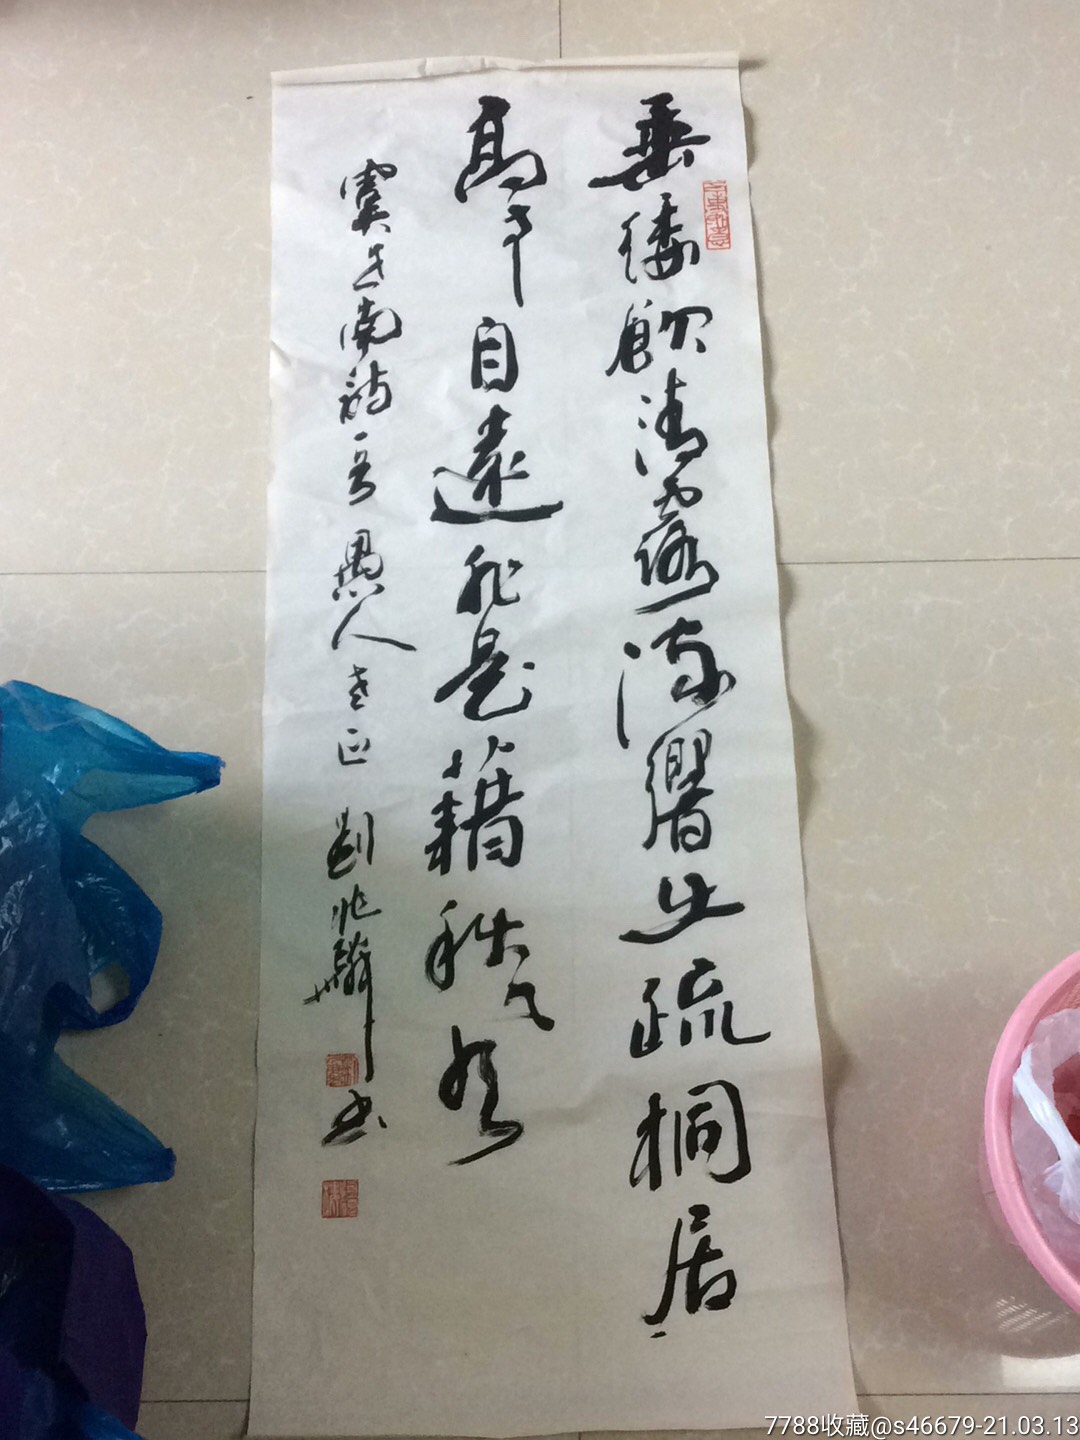 垂倭飲清露流響出疏桐居
高声自遠非是藉秋风
虞世南詩一首 愚人老正 劉兆 书
7788收藏@s46679-21.03.13